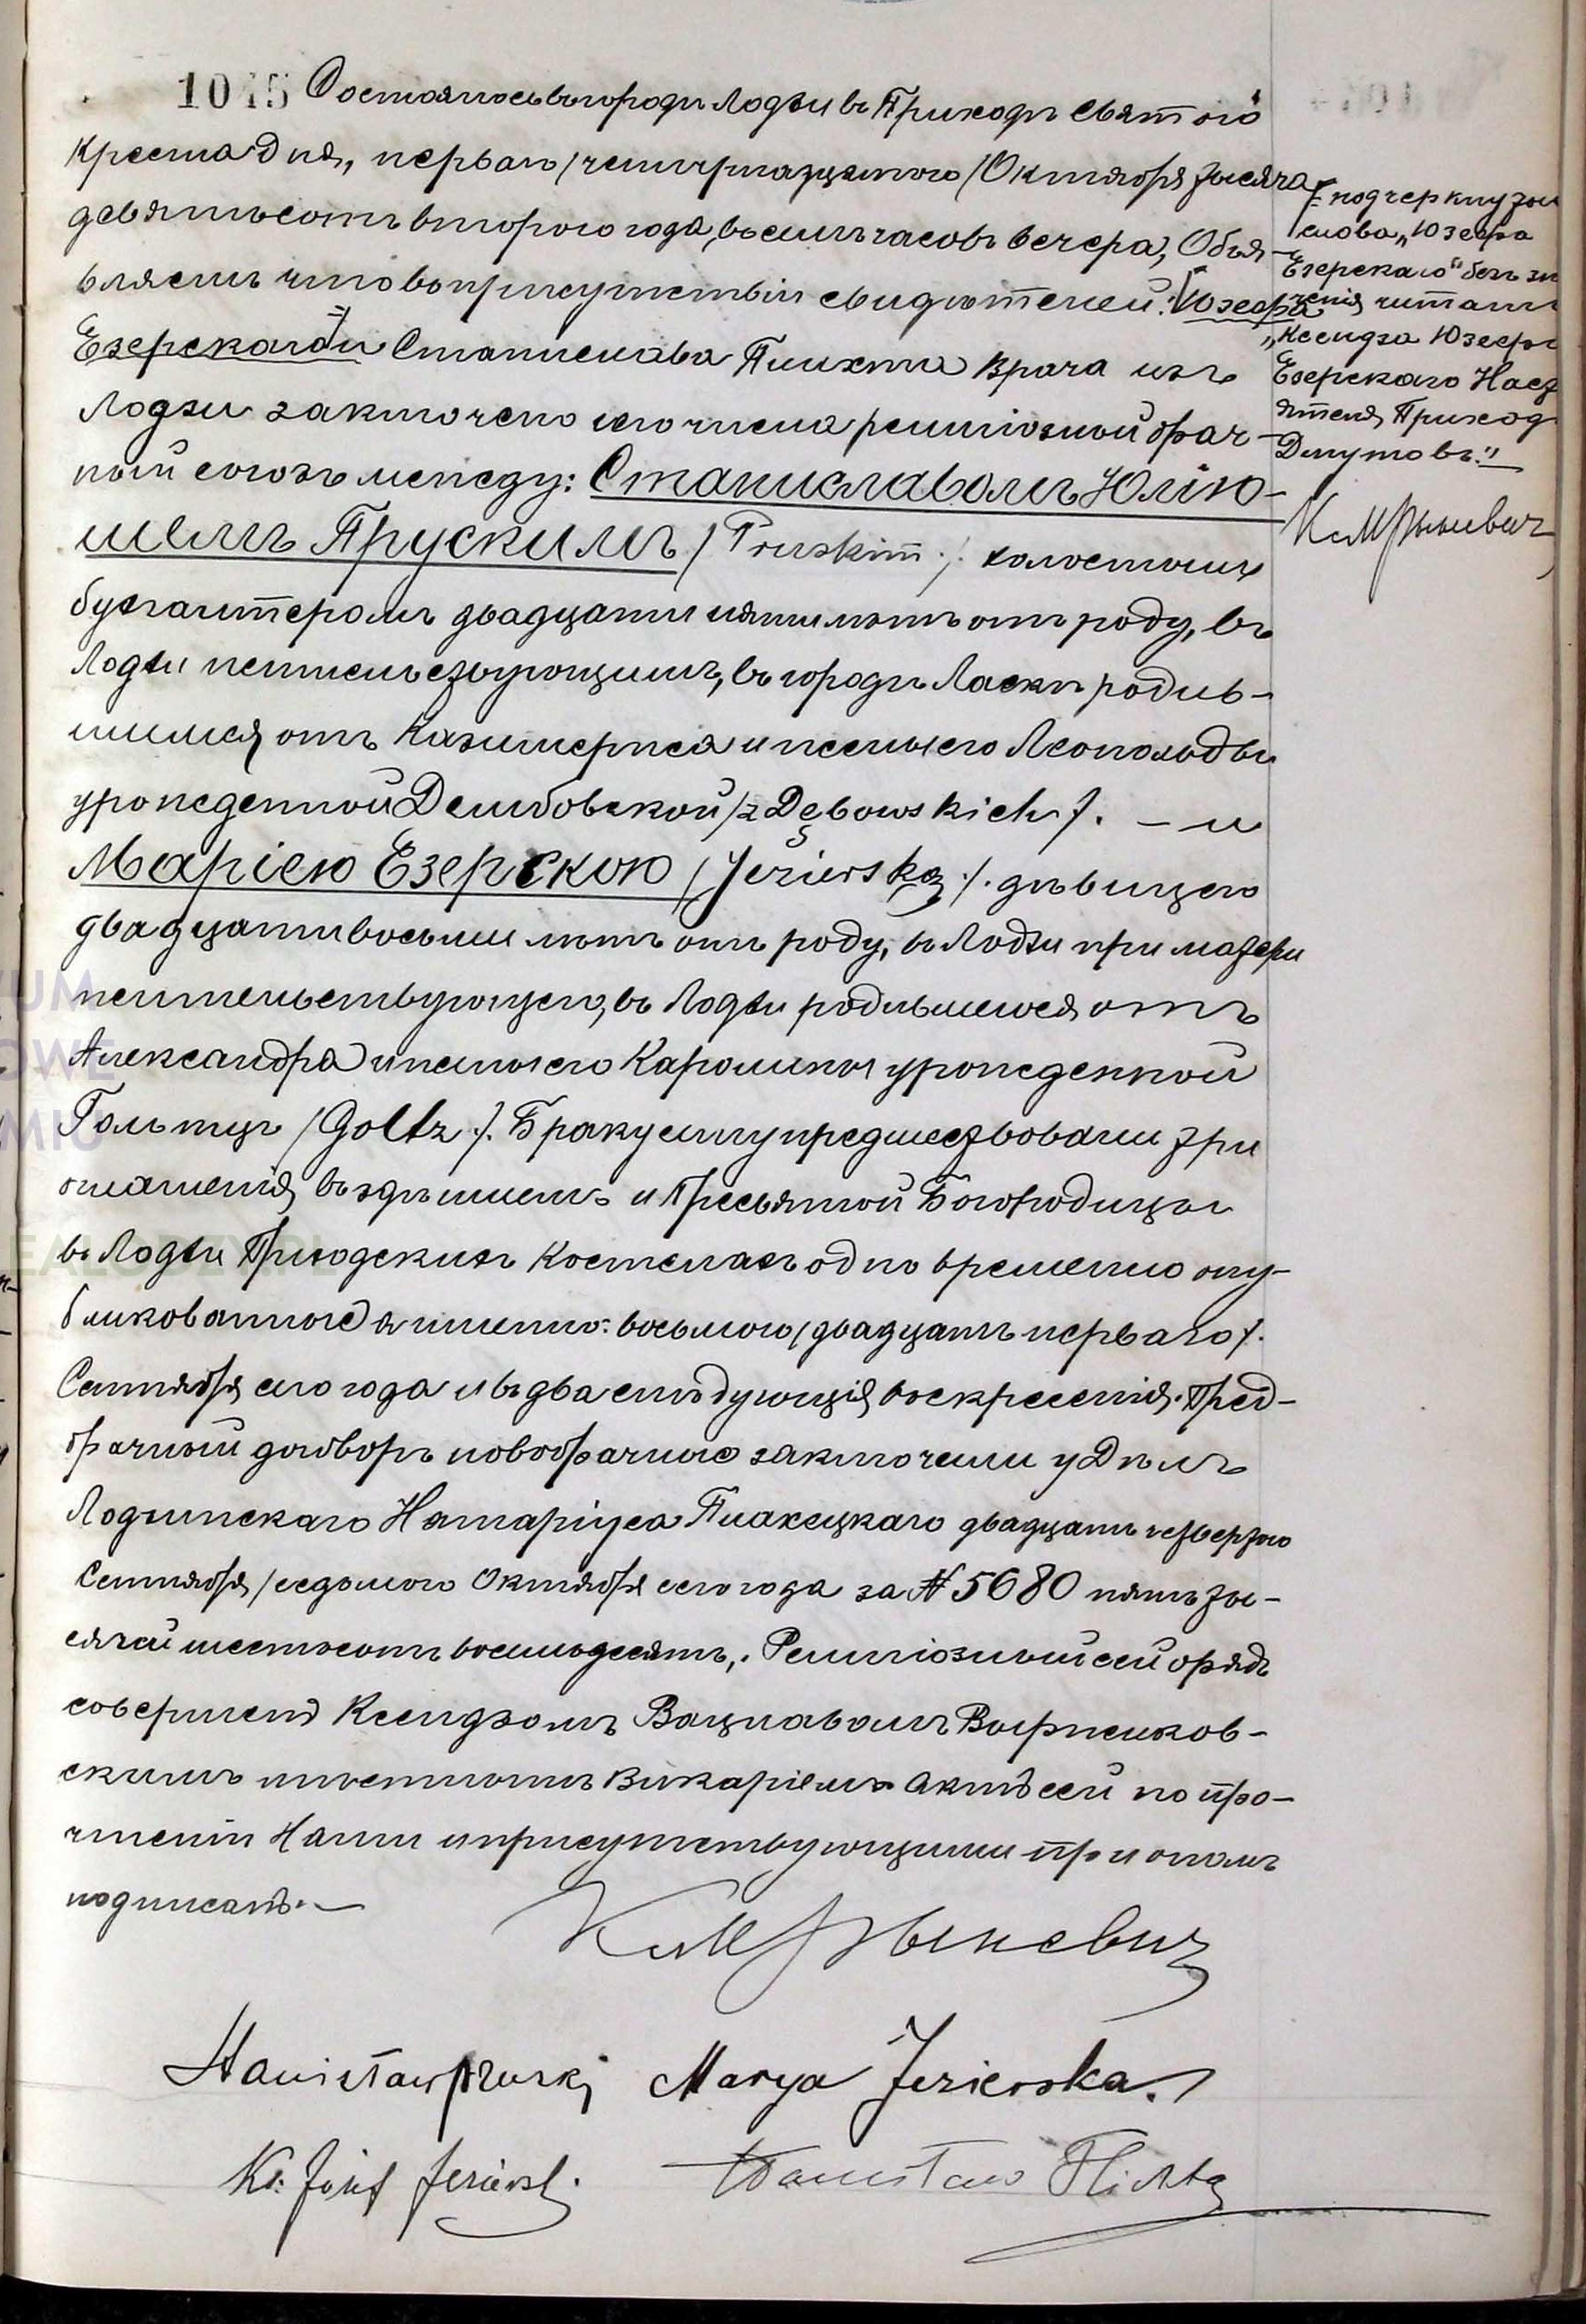 1015 Состоялось въ городѣ Лодзи въ Приходѣ Святого
Креста дня, перваго /четырнадцатого/ Октября тысяча
девятьсотъ второго года, въ семь часовъ вечера, Объя-
вляемъ что во присутствіи свидѣтелей: Юзефа
Езерскаго и Станислава Плихта врача изъ
Лодзи заключено сего числа религіозный брач-
ный союзъ между: Станиславомъ Юлію-
шемъ Прускимъ /Pruskim./ холостымъ
бухгалтеромъ двадцати пяти лѣтъ отъ роду, въ
Лодзи жительствующимъ, въ городѣ Ласкѣ родив-
шимся отъ Казимержа и жены его Леопольды
урожденной Дембовской /z Dębowskich/. – и
Маріею Езерскою /Jezierską./. дѣвицею
двадцати восьми лѣтъ отъ роду, въ Лодзи при матери
жительствующею, въ Лодзи родившеюся отъ
Александра и жены его Каролины урожденной
Гольтцъ /Goltz./. Браку сему предшествовали три
оглашенія въ здѣшнемъ и Пресвятой Богородицы
въ Лодзи Приходскихъ Костелахъ одновременно опу-
бликованные а именно: восьмого /двадцать перваго/.
Сентября сего года и въ два слѣдующія воскресенія. Пред-
брачный договоръ новобрачные заключили у Дѣлъ
Лодзинскаго Нотаріуса Плахецкаго двадцать четвертого
Сентября /седьмого Октября сего года за № 5680 пять ты-
сячей шестьсотъ восемьдесятъ,. Религіозный сей обрядъ
совершенъ Ксендзомъ Вацлавомъ Выржиков-
скимъ мѣстнымъ Викаріемъ Актъ сей по про-
чтеніи Нами и присутствующими при ономъ
подписанъ.—
Stanisław Pruski Marya Jezierska.
Ks. Józef Jeziersk. Stanisław Plichta
подчеркнутыи
слова „Юзефа
Езерскаго" безъ зн
ченія читать
„Ксендза Юзефа
Езерскаго Наст
ятеля Приход
Дмутовъ."